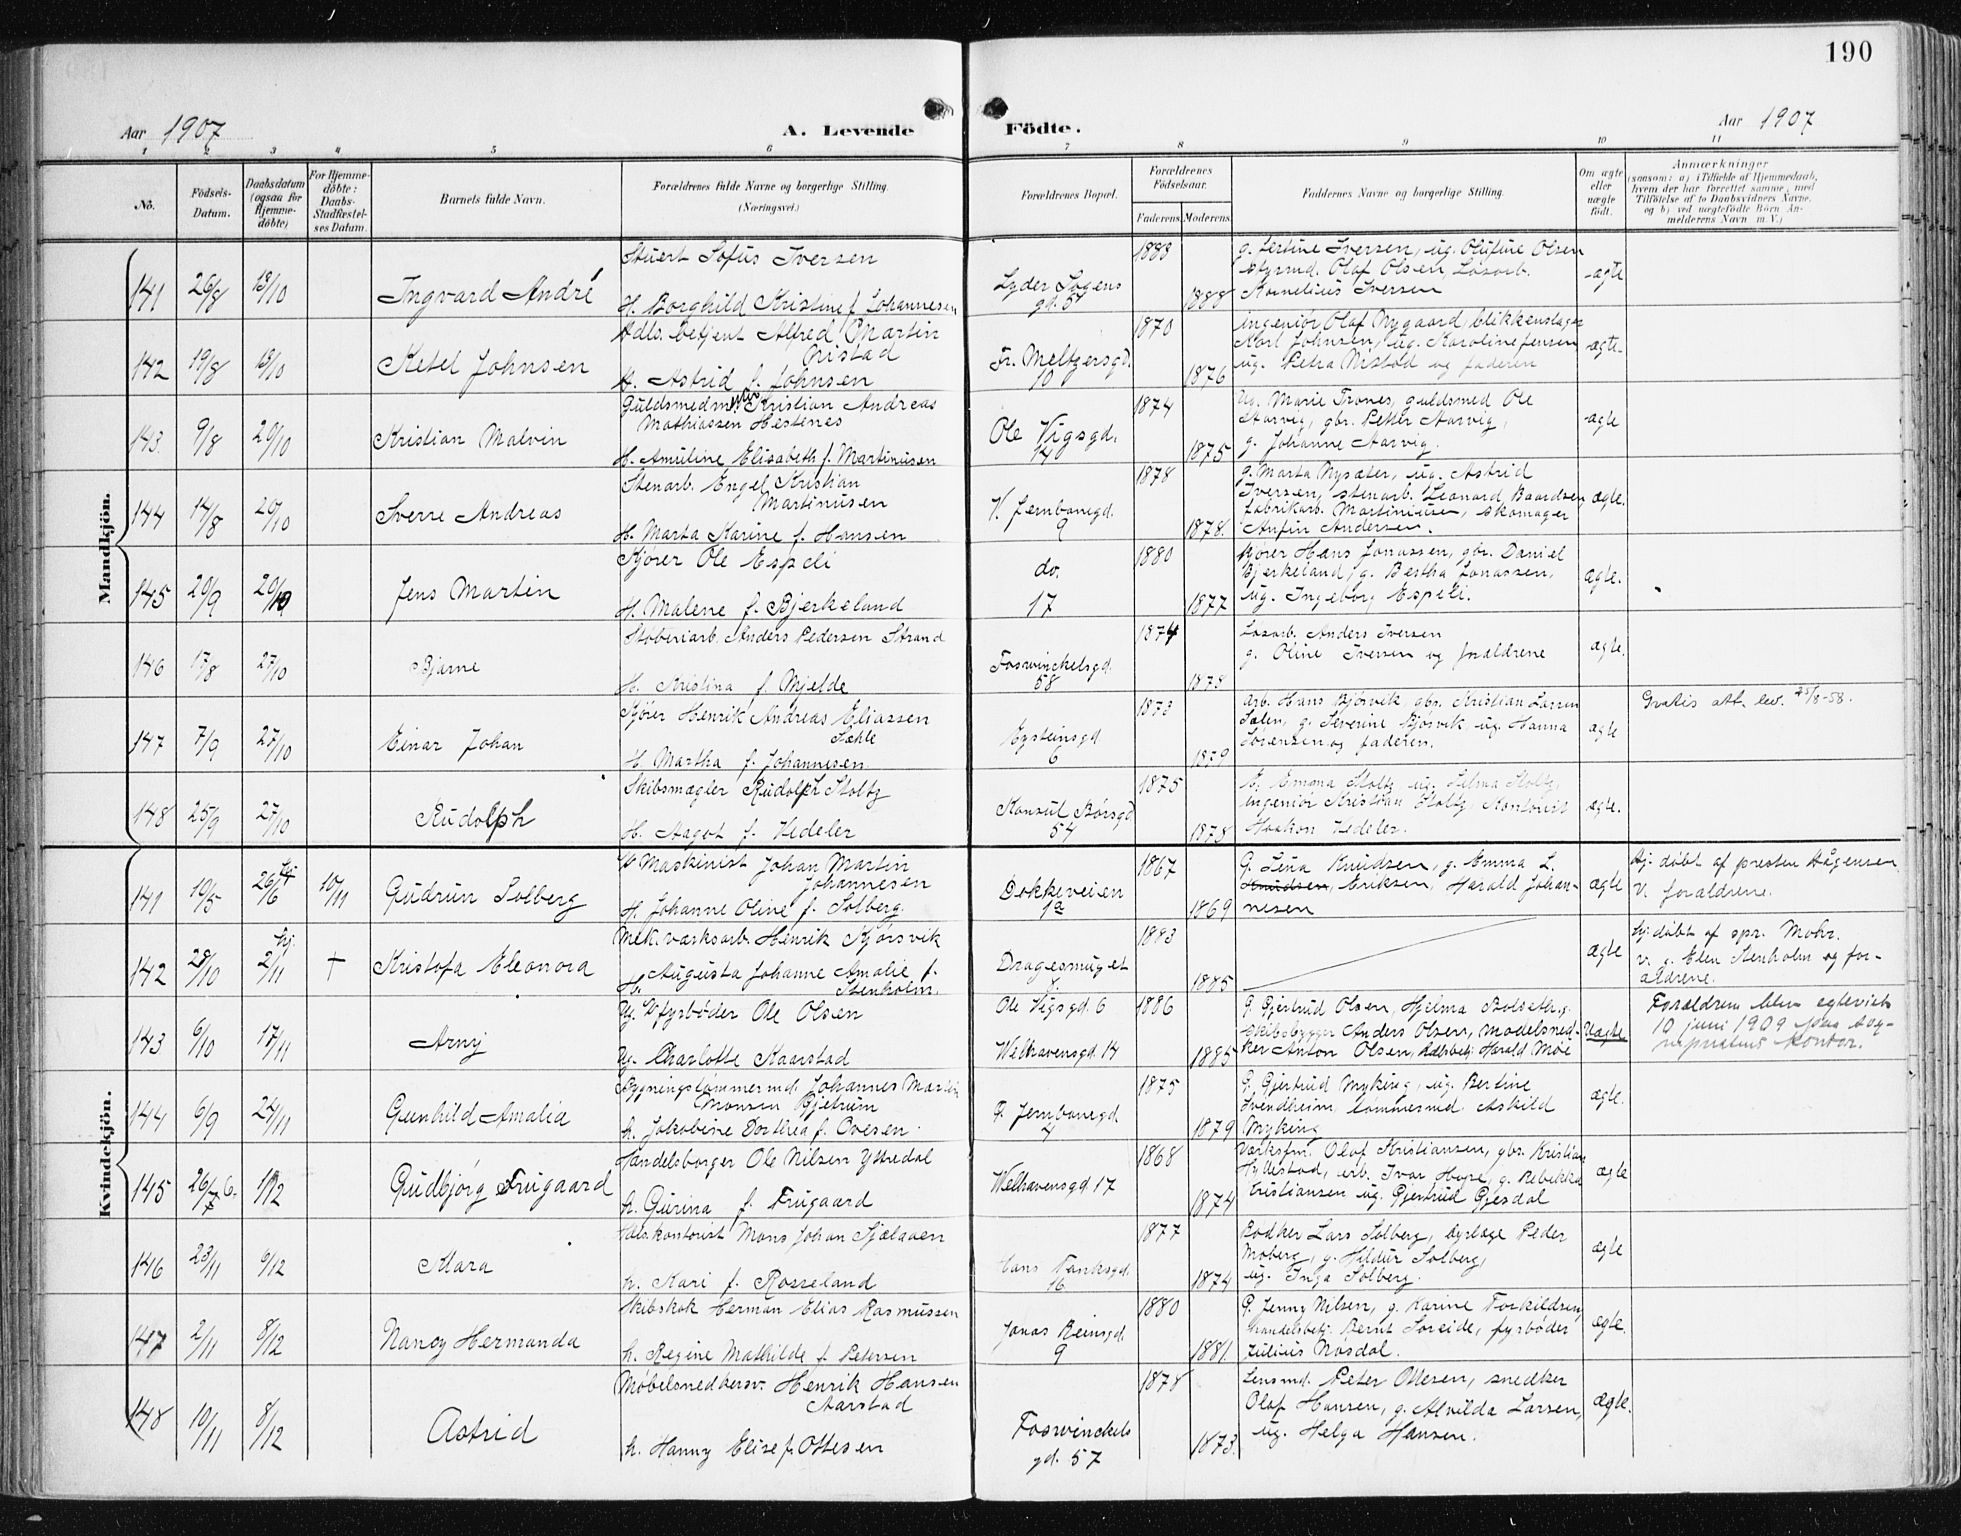 190
Aar 1907
A. Levende
Födte.
Aar 1907
1 2 3 4 5 6 7 8 9 10 11
No.
Födsels-
Datum.
Daabsdatum
(ogsaa for
Hjemme-
döbte)
For Hjemme-
döbte:
Daabs-
Stadfæstel-
ses Datum.
Barnets fulde Navn.
Forældrenes fulde Navne og borgerlige Stilling.
(Næringsvei.)
Forældrenes Bopæl.
Forældrenes
Födselsaar.
Faderens
Moderens
Faddernes Navne og borgerlige Stilling.
Om ægte
eller
uægte
födt.
Anmærkninger
(saasom: a) i Tilfælde af Hjemmedaab,
hvem der har forrettet samme, med
Tilföielse af to Daabsvidners Navne,
og b) ved uægtefödte Börn An-
melderens Navn m. V.)
Mandkjön.
141 26/8 13/10 Ingvard André
Stuert Sofus Iversen
H. Borghild Kristine f. Johannesen
Lyder Sagens
gd. 57
1883 1888
Olufine Olsen
Olaf Olsen Løsarb.
Kornelius Iversen
ægte
142 19/8 13/10 Ketel Johnsen
Hdls. betjent Alfred Martin
H. Astrid f. Johnsen
Fr. Meltzersgd.
10
1870 1876
ingeniør Olaf Nygaard, blikkenslager
Karl Johnsen, ug. Karoline Jensen
ug. Petra og faderen
ægte
143. 9/8 20/10 Kristian Malvin
Guldsmedm. Kristian Andreas
Mathiassen Hestenes
H. Amuline Elisabeth f. Martinusen
Ole Vigsgd.
14
1874 1875
Ug. Marie Trones, guldsmed Ole
Aarvig, gbr. Petter Aarvig,
g. Johanne Aarvig.
ægte
144 14/8 20/10 Sverre Andreas
Stenarb. Engel Kristian
Martinusen
H. Marta Karine f. Hansen
V. Jernbanegd.
9
1878 1878.
g. Marta Nysæter, ug. Astrid
Iversen, stenarb. Leonard Baardsen,
fabrikarb. Martinusen, skomager
Anfin Andersen.
ægte.
145 20/9 20/10 Jens Martin
Kjører Ole Espeli
H. Malene f. Bjerkeland
do.
17
1880 1877
Kjører Hans Jonassen, gbr. Daniel
Bjerkeland, g. Bertha Jonassen,
ug. Ingeborg Espeli.
ægte.
146 17/8 27/10 Bjarne
Støberiarb. Anders Pedersen Strand
H. Kristina f. Mjelde
Fosvinckelsgd.
58
1874 1878
Løsarb. Anders Iversen
g. Oline Iversen og forældrene
ægte.
147 7/9 27/10 Einar Johan
Kjører Henrik Andreas Eliassen
Sæhle
H. Martha f. Johannesen.
Eysteinsgd.
6
1873 1879
arb. Hans Bjørsvik, gbr. Kristian Larsen
Sælen, g. Severine Bjørsvik ug. Hanna
Sørensen og faderen.
ægte
Gratis att. lev. 25/8-58.
148 25/9 27/10 Rudolph
Skibsmægler Rudolph Stoltz
H. Aagot f. Vedeler
Konsul Børsgd.
54
1875 1878
E. Emma Stoltz ug. Hilma Stoltz,
ingeniør Kristian Stoltz, Kontorist
Haakon Vedeler.
ægte.
Kvindekjön.
141 10/5 hj. 26/6 10/11 Gudrun Solberg
Maskinist Johan Martin
Johannesen
H. Johanne Oline f. Solberg.
Dokkeveien
1a
1867 1869
G. Lina Knudsen, g. Emma L.
Knudsen, Eriksen, Harald Johan-
nesen
ægte
Hj. døbt af presten Hågensen
V. forældrene.
142 28/10 hj. 2/11 † Kristofa Eleonora
Mek. værksarb. Henrik Kjørsvik
H. Augusta Johanne Amalie f.
Stenholm.
Dragesmuget
1883 1885
ægte
hj. døbt af spr. Mohr.
v. g. Elen Stenholm og for-
ældrene.
143 6/10 17/11 Arny
Ug. fyrbøder Ole Olsen
Ug. Charlotte Kaarstad
Ole Vigsgd. 6
Welhavensgd. 14
1886 1885
G. Gjertrud Olsen, Hjelma
skibsbygger Anders Olsen, modelsned-
ker Anton Olsen, hdlsbetj. Harald Moe
Uægte
Forældrene blev egteviet
10 juni 1909 paa sog-
neprestens kontor.
144 6/9 24/11 Gunhild Amalia
Bygningstømmermd. Johannes Martin
Monsen Bjetrum
h. Jakobine Dorthea f. Ovesen.
F. Jernbanegd.
4
1875 1879
G. Gjertrud Myking, ug. Bertine
Svendheim, tømmermd. Askild
Myking
ægte.
145 26/7 6. 1/12 Gudbjørg Frugaard
Handelsborger Ole Nilsen Yttredal
h. Gurina f. Frugaard
Welhavensgd. 17
1868 1874
Værksfm. Olaf Kristiansen, gbr. Kristian
Hyllestad, arb. Ivar Høyre, g. Rebekka
Kristiansen ug. Gjertrud Gjesdal
ægte
146 23/11 9/12 Mara
Hdls.kontorist Mons Johan Sjælaaen
h. Kari f. Rosseland
Hans Tanksgd.
16
1877 1874
Bødker Lars Solberg, dyrlæge Peder
Moberg, g. Hildur Solberg,
ug. Inga Solberg.
ægte
147 2/11 8/12 Nancy Hermanda
Skibskok Herman Elias Rasmussen
h. Regine Mathilde f. Petersen
Jonas Reinsgd.
9
1880 1881.
G. Jenny Nilsen, g. Karine Torkildsen,
handelsbetj. Bernt Søreide, fyrbøder
Julius Mosdal.
ægte.
148 10/11 8/12 Astrid
Møbelsnedkersv. Henrik Hansen
Aarstad
h. Hanny Elise f. Ottesen
Fosvinckels
gd. 57
1878 1873.
Lensmd. Peter Ottesen, snedker
Olaf Hansen, g. Alvilda Larsen,
ug. Helga Hansen.
ægte.